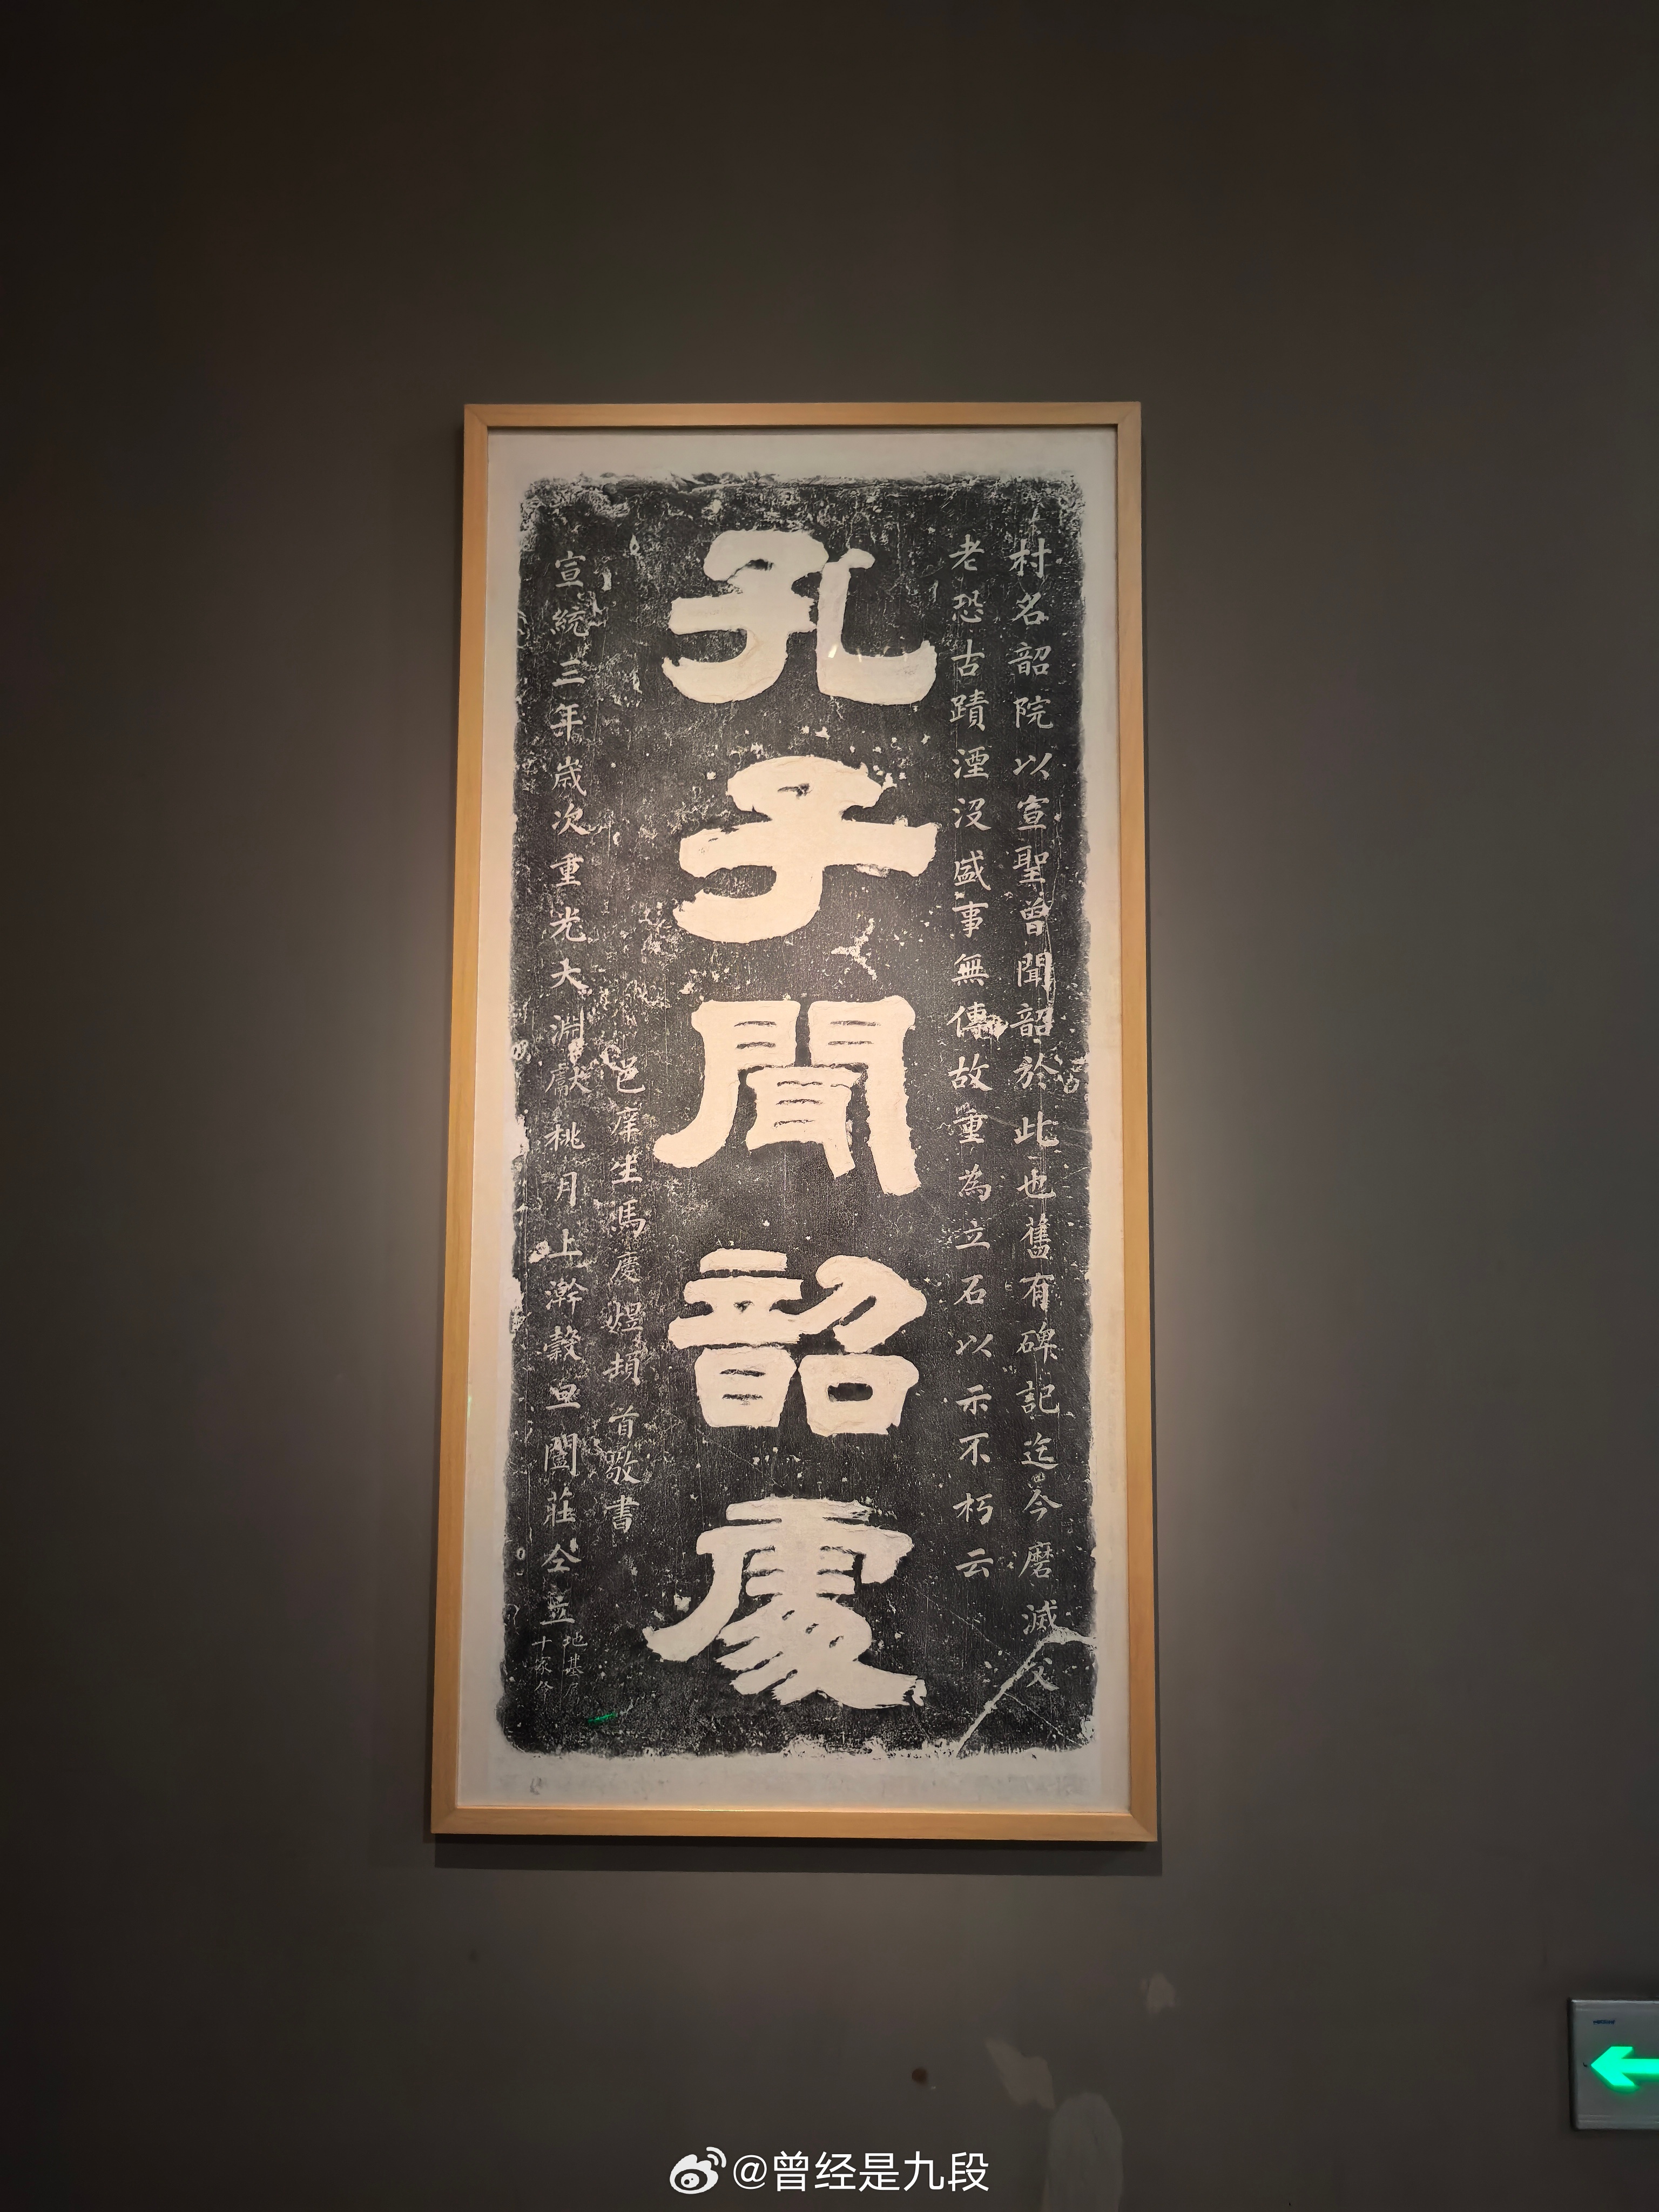 村名韶院以宣聖曾聞韶於此也舊有碑記迄今磨滅父
老恐古蹟湮沒盛事無傳故重為立石以示不朽云
孔子聞韶處
邑庠生馬慶煾頓首敬書
宣統三年歲次重光大淵獻桃月上澣穀旦闔莊仝立
地基
十家
@曾经是九段